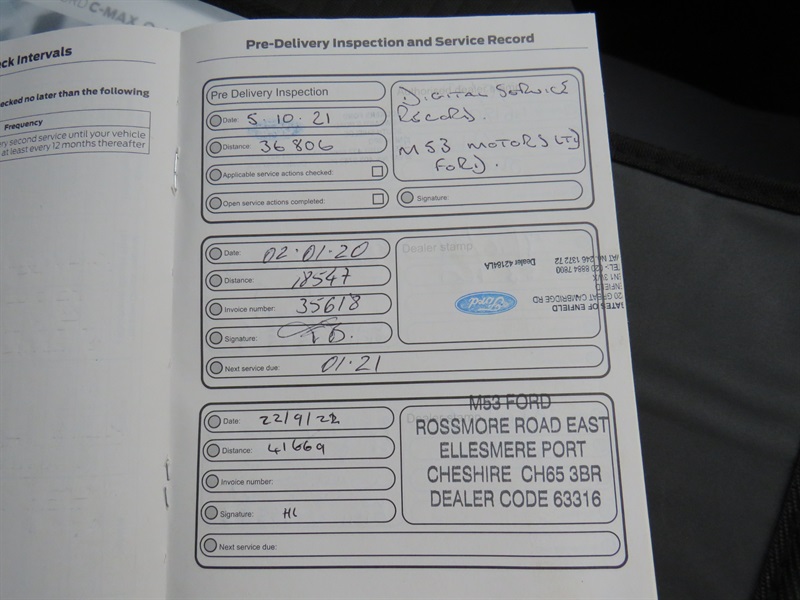 ORD C-MAX
eck Intervals
ecked no later than the following
Frequency
ry second service until your vehicle
at least every 12 months thereafter
Pre-Delivery Inspection and Service Record
Pre Delivery Inspection
Date: 5.10.21
Distance: 36806
Applicable service actions checked:
Open service actions completed:
DIGITAL SERVICE
RECORD.
M53 MOTORS LTD
FORD.
Signature:
Date: 02.01.20
Distance: 18547
Invoice number: 35618
Signature:
Next service due: 01.21
Dealer stamp
GATES OF ENFIELD
20 GREAT CAMBRIDGE RD
NFIELD
EN1 3
TEL - 020 8884 7800
VAT NA 246 1372 72
Dealer 42184LA
Ford
Date: 22/9/22
Distance: 41669
Invoice number:
Signature: HL
Next service due:
M53 FORD
ROSSMORE ROAD EAST
ELLESMERE PORT
CHESHIRE CH65 3BR
DEALER CODE 63316